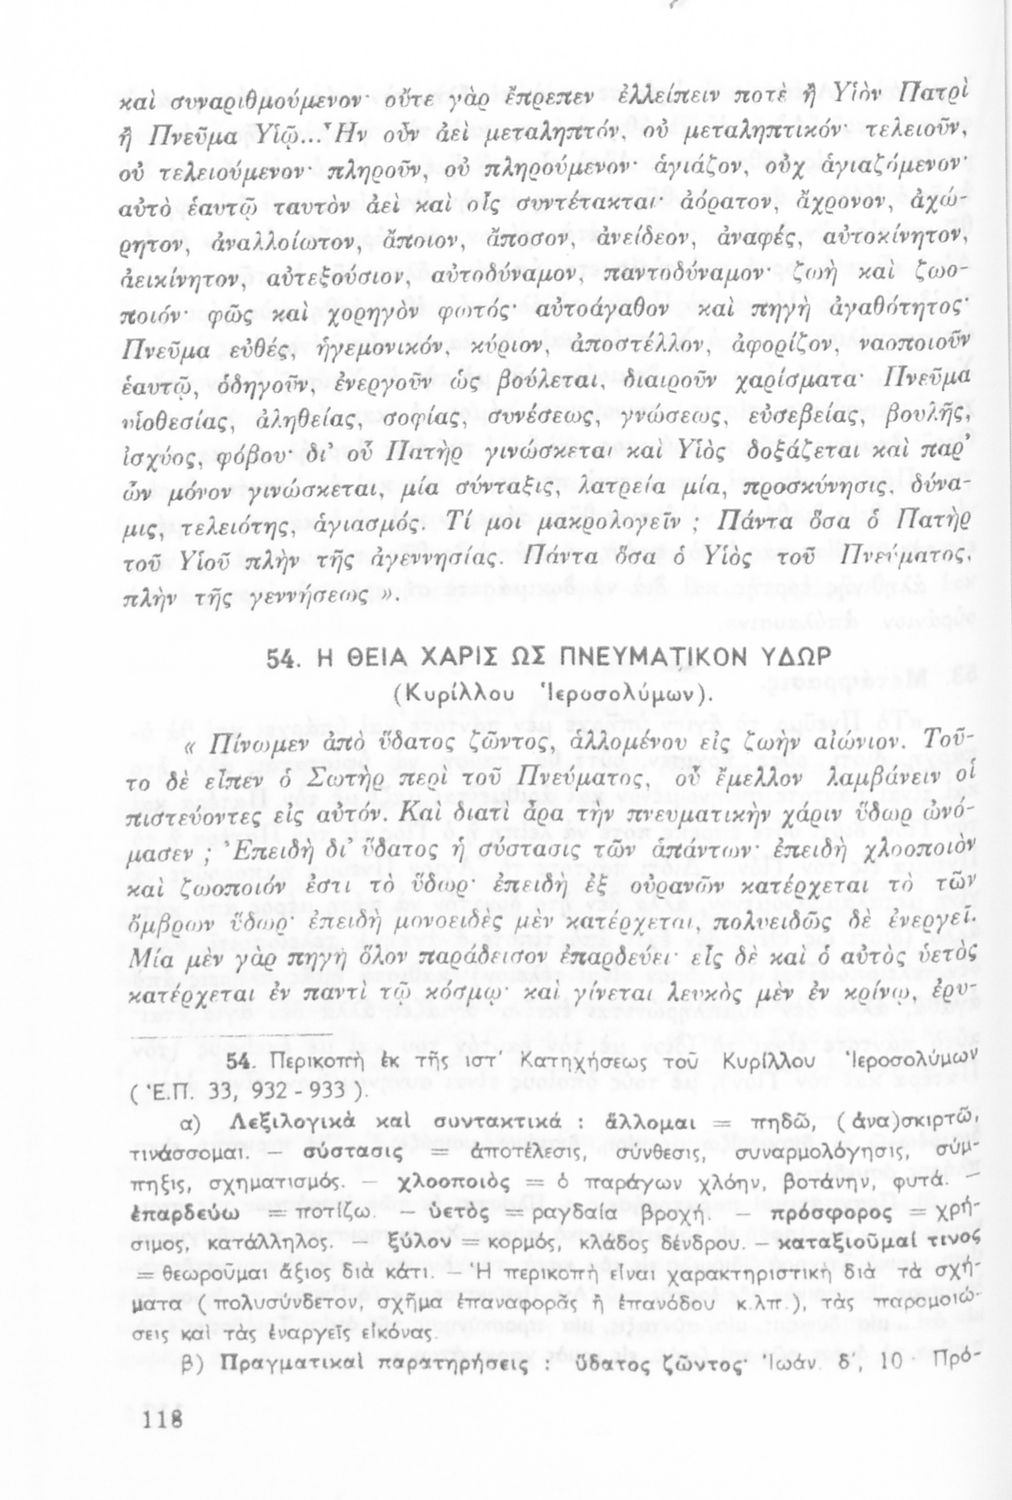 καὶ συναριθμούμενον· οὔτε γὰρ ἔπρεπεν ἐλλείπειν ποτὲ ἢ Υἱὸν Πατρὶ
ἢ Πνεῦμα Υἱῷ... Ἦν οὖν ἀεὶ μεταληπτόν, οὐ μεταληπτικόν· τελειοῦν,
οὐ τελειούμενον· πληροῦν, οὐ πληρούμενον· ἁγιάζον, οὐχ ἁγιαζόμενον·
αὐτὸ ἑαυτῷ ταυτὸν ἀεὶ καὶ οἷς συντέτακται· ἀόρατον, ἄχρονον, ἀχώ-
ρητον, ἀναλλοίωτον, ἄποιον, ἄποσον, ἀνείδεον, ἀναφές, αὐτοκίνητον,
ἀεικίνητον, αὐτεξούσιον, αὐτοδύναμον, παντοδύναμον· ζωὴ καὶ ζωο-
ποιόν· φῶς καὶ χορηγὸν φωτός· αὐτοάγαθον καὶ πηγὴ ἀγαθότητος·
Πνεῦμα εὐθές, ἡγεμονικόν, κύριον, ἀποστέλλον, ἀφορίζον, ναοποιοῦν
ἑαυτῷ, ὁδηγοῦν, ἐνεργοῦν ὡς βούλεται, διαιροῦν χαρίσματα· Πνεῦμα
υἱοθεσίας, ἀληθείας, σοφίας, συνέσεως, γνώσεως, εὐσεβείας, βουλῆς,
ἰσχύος, φόβου· δι' οὗ Πατὴρ γινώσκεται καὶ Υἱὸς δοξάζεται καὶ παρ'
ὧν μόνον γινώσκεται, μία σύνταξις, λατρεία μία, προσκύνησις, δύνα-
μις, τελειότης, ἁγιασμός. Τί μοι μακρολογεῖν ; Πάντα ὅσα ὁ Πατὴρ
τοῦ Υἱοῦ πλὴν τῆς ἀγεννησίας. Πάντα ὅσα ὁ Υἱὸς τοῦ Πνεύματος,
πλὴν τῆς γεννήσεως ».
54. Η ΘΕΙΑ ΧΑΡΙΣ ΩΣ ΠΝΕΥΜΑΤΙΚΟΝ ΥΔΩΡ
(Κυρίλλου Ἱεροσολύμων).
« Πίνωμεν ἀπὸ ὕδατος ζῶντος, ἁλλομένου εἰς ζωὴν αἰώνιον. Τοῦ-
το δὲ εἶπεν ὁ Σωτὴρ περὶ τοῦ Πνεύματος, οὗ ἔμελλον λαμβάνειν οἱ
πιστεύοντες εἰς αὐτόν. Καὶ διατὶ ἄρα τὴν πνευματικὴν χάριν ὕδωρ ὠνό-
μασεν ; Ἐπειδὴ δι' ὕδατος ἡ σύστασις τῶν ἁπάντων· ἐπειδὴ χλοοποιὸν
καὶ ζωοποιόν ἐστι τὸ ὕδωρ· ἐπειδὴ ἐξ οὐρανῶν κατέρχεται τὸ τῶν
ὄμβρων ὕδωρ· ἐπειδὴ μονοειδὲς μὲν κατέρχεται, πολυειδῶς δὲ ἐνεργεῖ.
Μία μὲν γὰρ πηγὴ ὅλον παράδεισον ἐπαρδεύει· εἷς δὲ καὶ ὁ αὐτὸς ὑετὸς
κατέρχεται ἐν παντὶ τῷ κόσμῳ· καὶ γίνεται λευκὸς μὲν ἐν κρίνῳ, ἐρυ-
54. Περικοπὴ ἐκ τῆς ιστ' Κατηχήσεως τοῦ Κυρίλλου Ἱεροσολύμων
( Ἑ.Π. 33, 932 - 933 ).
α) Λεξιλογικὰ καὶ συντακτικά : ἅλλομαι = πηδῶ, (ἀνα)σκιρτῶ,
τινάσσομαι. — σύστασις = ἀποτέλεσις, σύνθεσις, συναρμολόγησις, σύμ-
πηξις, σχηματισμός. — χλοοποιὸς = ὁ παράγων χλόην, βοτάνην, φυτά. —
ἐπαρδεύω = ποτίζω. — ὑετὸς = ραγδαία βροχή. — πρόσφορος = χρή-
σιμος, κατάλληλος. — ξύλον = κορμός, κλάδος δένδρου. — καταξιοῦμαί τινος
= θεωροῦμαι ἄξιος διὰ κάτι. — Ἡ περικοπὴ εἶναι χαρακτηριστικὴ διὰ τὰ σχή-
ματα ( πολυσύνδετον, σχῆμα ἐπαναφορᾶς ἢ ἐπανόδου κ.λπ.), τὰς παρομοιώ-
σεις καὶ τὰς ἐναργεῖς εἰκόνας.
β) Πραγματικαὶ παρατηρήσεις : ὕδατος ζῶντος· Ἰωάν. δ', 10 · Πρό-
118